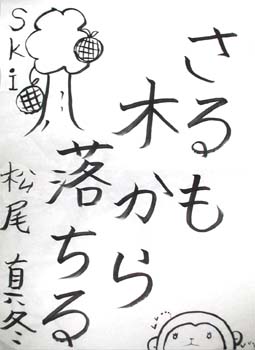 さるも
木から
落ちる
Ski
松尾 真冬